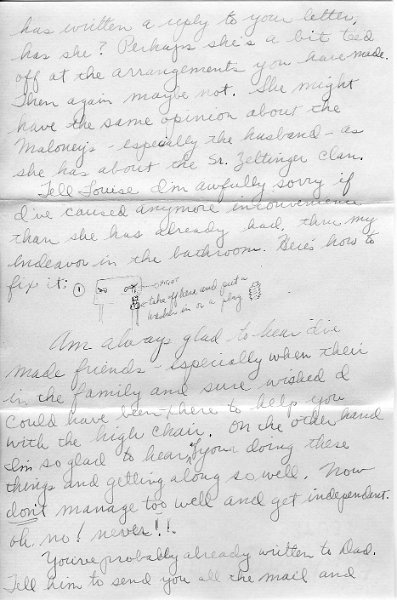 has written a reply to your letter,
has she? Perhaps she's a bit te'd
off at the arrangements you have made.
Then again maybe not. She might
have the same opinion about the
Maloneys - especially the husband - as
she has about the Sr. Zeltinger Clan.
Tell Louise I'm awfully sorry if
I've caused anymore inconvenience
than she has already had, thru my
endeavor in the bathroom. Here's how to
fix it: 1
take off here and put a
washer in or a plug
Am always glad to hear I've
made friends - especially when their
in the family and sure wished I
could have been there to help you
with the high chair. On the other hand
I'm so glad to hear of your doing these
things and getting along so well. Now
don't manage too well and get independent.
oh no! never!!
You've probably already written to Dad.
Tell him to send you all the mail and